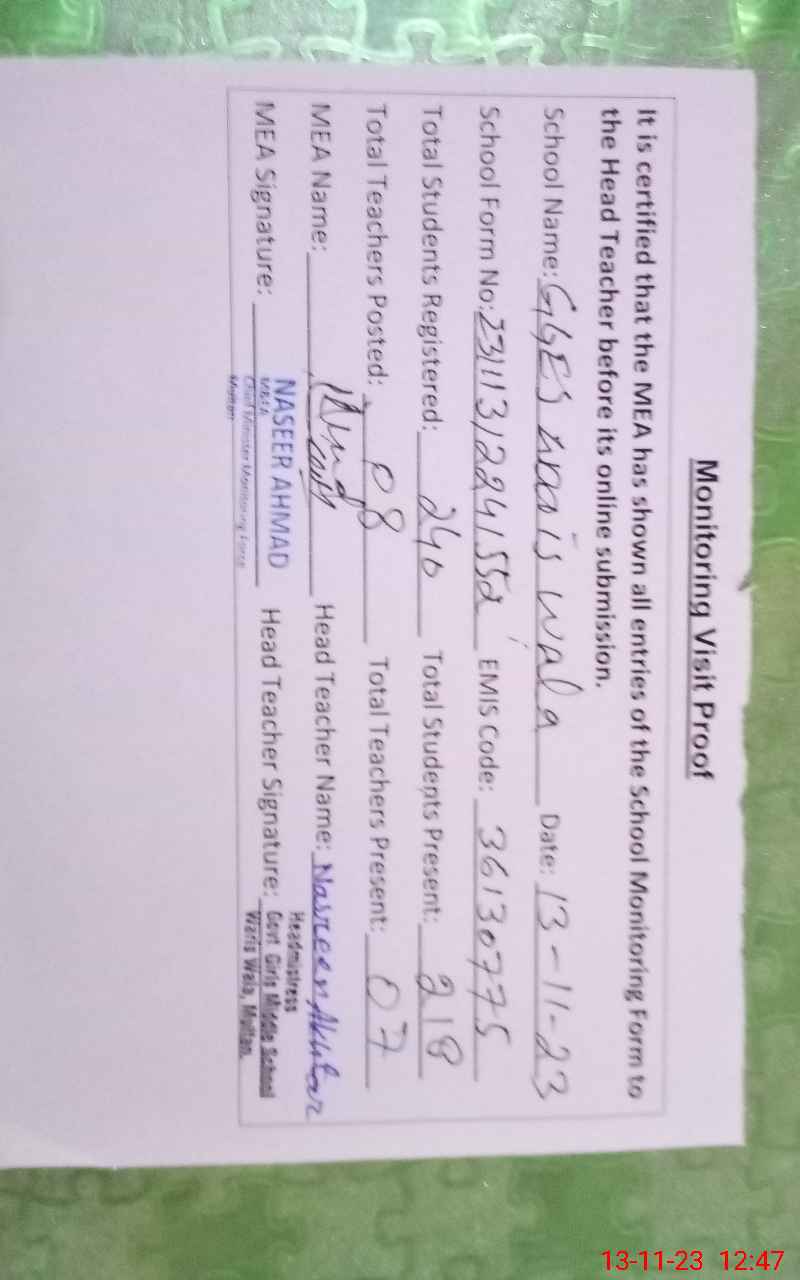 Monitoring Visit Proof
It is certified that the MEA has shown all entries of the School Monitoring Form to
the Head Teacher before its online submission.
School Name: wala Date: 13-11-23
School Form No: EMIS Code: 36130775
Total Students Registered: 240 Total Students Present: 218
Total Teachers Posted: 08 Total Teachers Present: 07
MEA Name: Head Teacher Name: Nasreen Akhtar
MEA Signature: Head Teacher Signature:
NASEER AHMAD
M&EA
Chief Minister Monitoring Force
Multan
Headmistress
Govt Girls Middle School
Waris Wala, Multan.
13-11-23 12:47